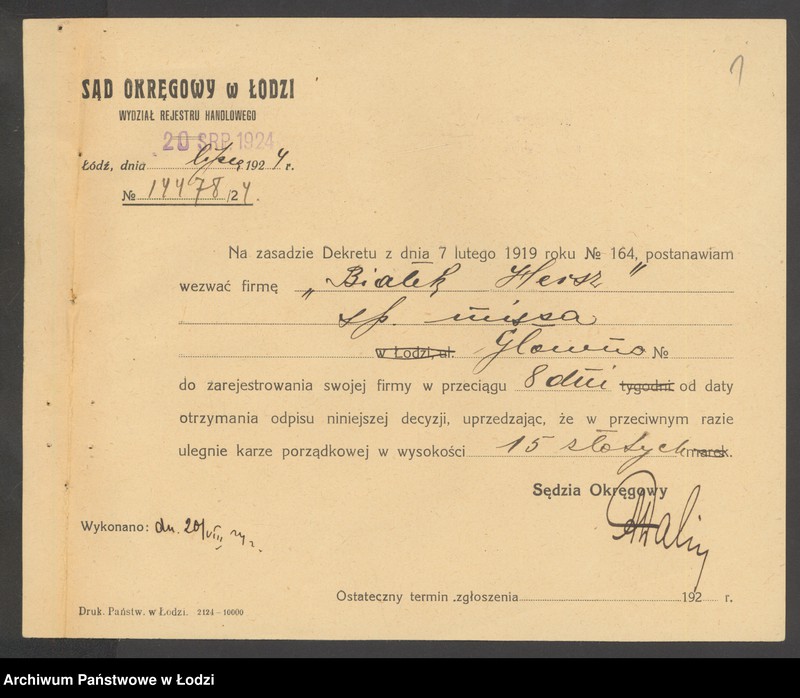 1
SĄD OKRĘGOWY w ŁODZI
WYDZIAŁ REJESTRU HANDLOWEGO
20 SRP 1924
Łódź, dnia lipca 1924 r.
№ 14478/24.
Na zasadzie Dekretu z dnia 7 lutego 1919 roku № 164, postanawiam
wezwać firmę „Białek Hersz"
sp.
w Łodzi, ul. Główno №
do zarejestrowania swojej firmy w przeciągu 8 dni tygodni od daty
otrzymania odpisu niniejszej decyzji, uprzedzając, że w przeciwnym razie
ulegnie karze porządkowej w wysokości 15 złotych marek.
Sędzia Okręgowy
Wykonano: dn. 20/VIII 24 r.
Ostateczny termin zgłoszenia 192 r.
Druk. Państw. w Łodzi. 2124—10000
Archiwum Państwowe w Łodzi